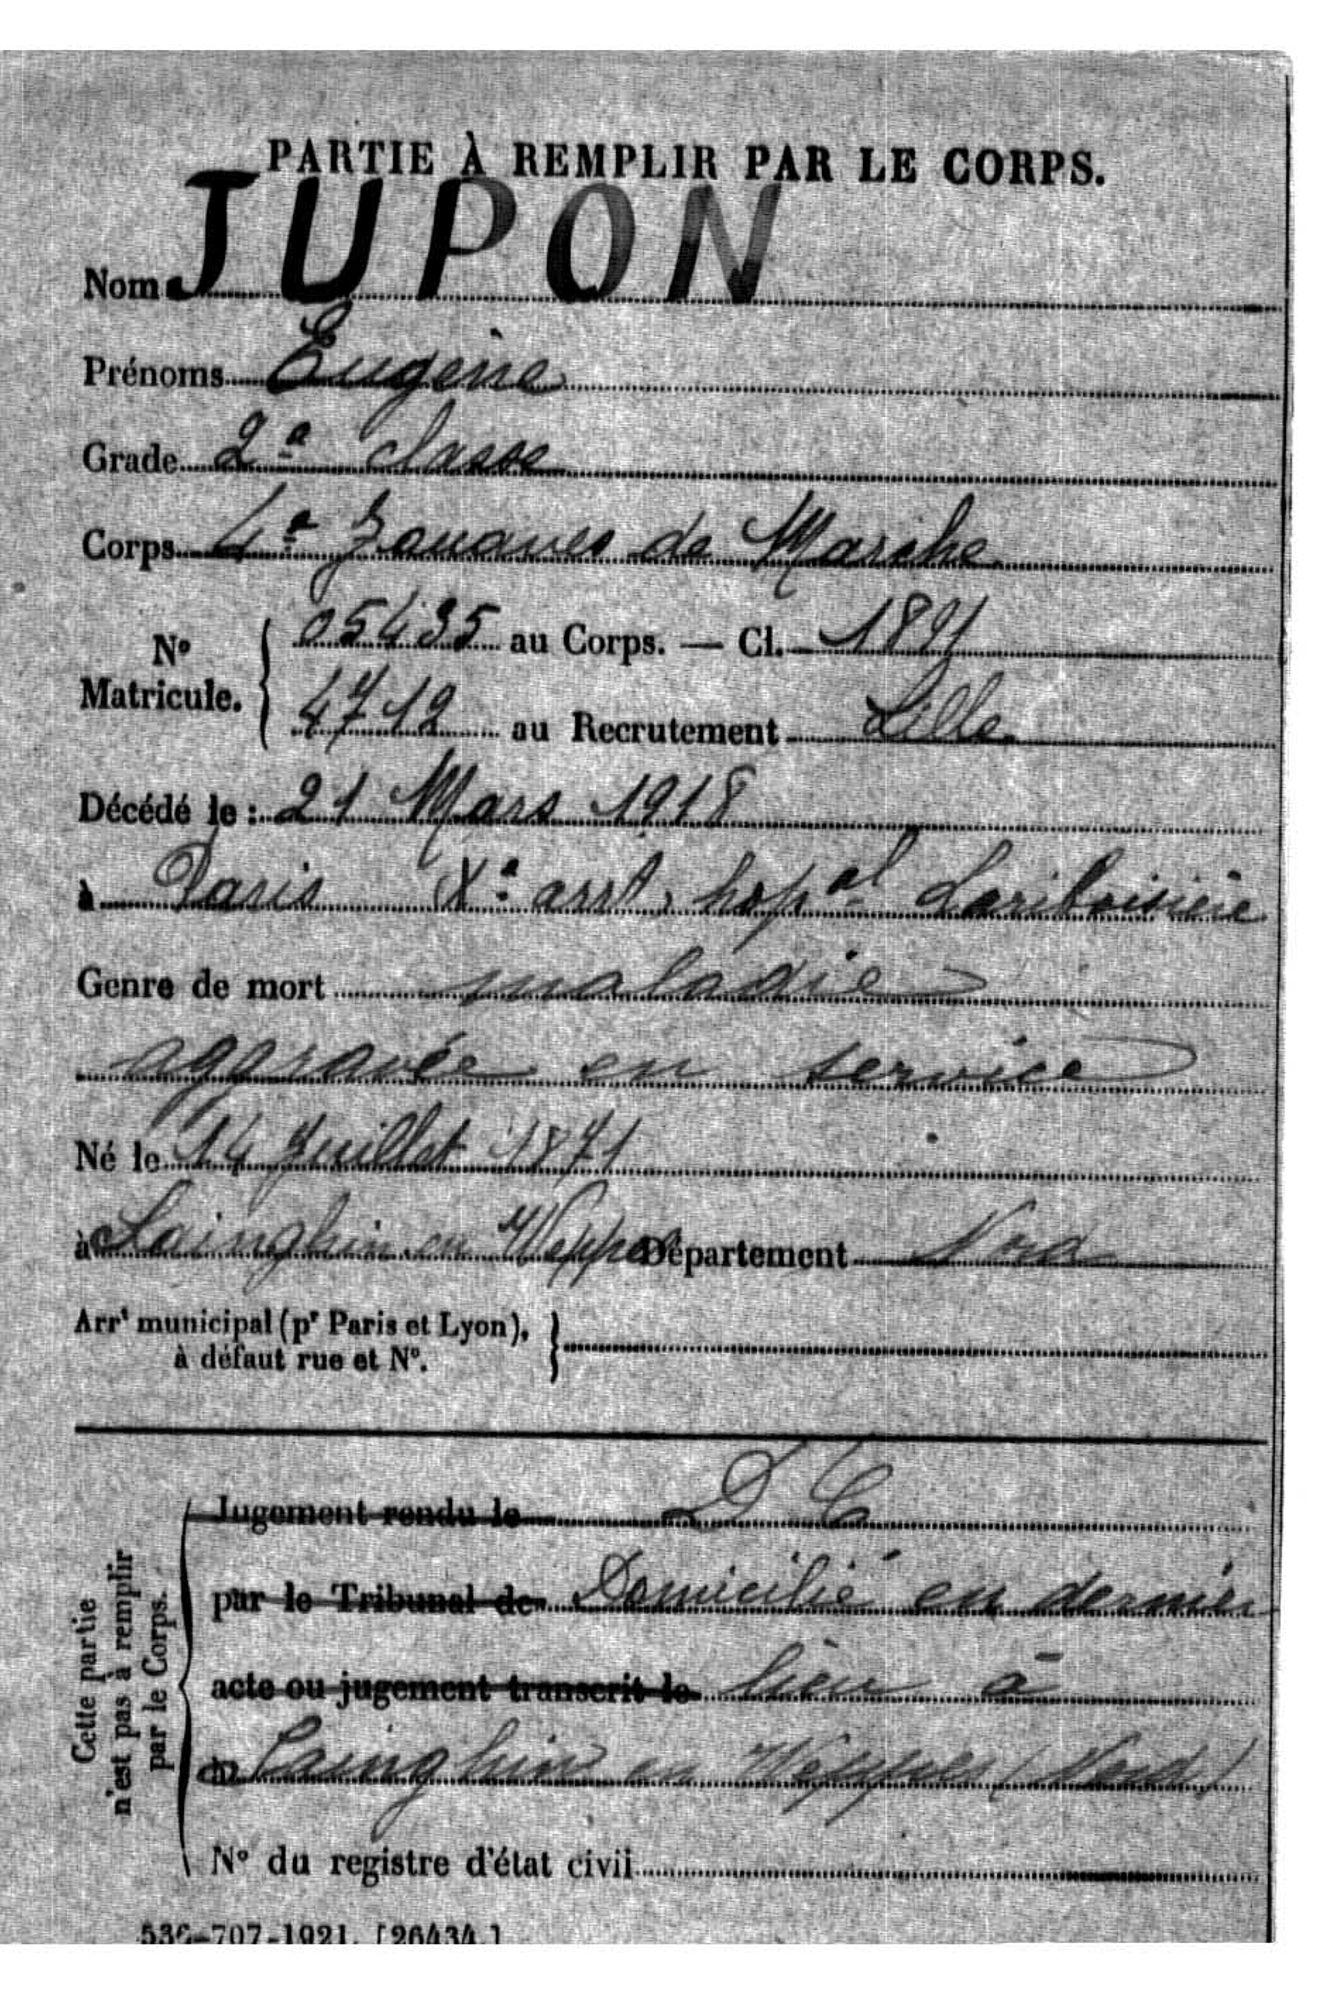 PARTIE À REMPLIR PAR LE CORPS.
Nom JUPON
Prénoms Eugène
Grade 2e classe
Corps 4e Zouaves de Marche
No Matricule. { 05435 au Corps. — Cl. 1891
4712 au Recrutement Lille
Décédé le : 21 Mars 1918
à Paris Xe arrt, hopal Lariboisière
Genre de mort maladie
aggravée en service
Né le 14 Juillet 1871
à Sainghin en Weppes Département Nord
Arrt municipal (pr Paris et Lyon), }
à défaut rue et No.
Jugement rendu le D C
par le Tribunal de Domicilié en dernier
acte ou jugement transcrit le lieu à
Sainghin en Weppes (Nord)
No du registre d'état civil
Cette partie
n'est pas à remplir
par le Corps.
536-707-1921. [26434.]